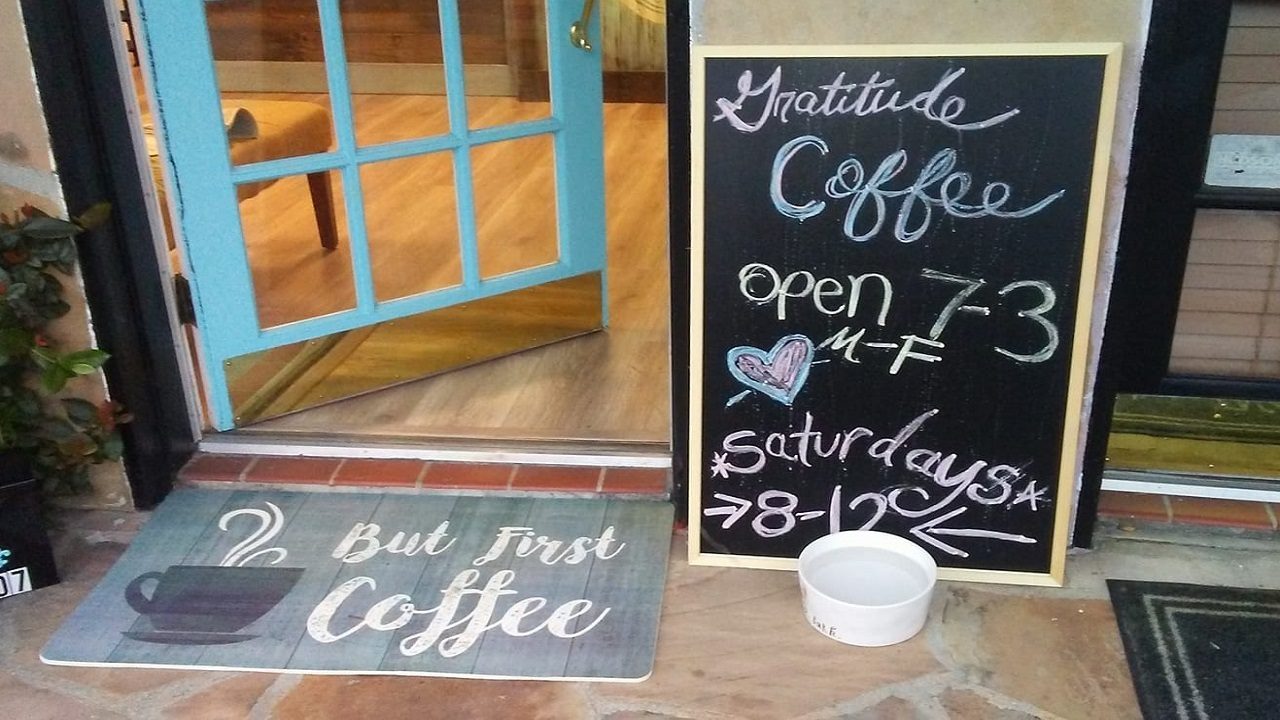 Gratitude
Coffee
open 7-3
M-F
*Saturdays*
→8-12←
But First
Coffee
07